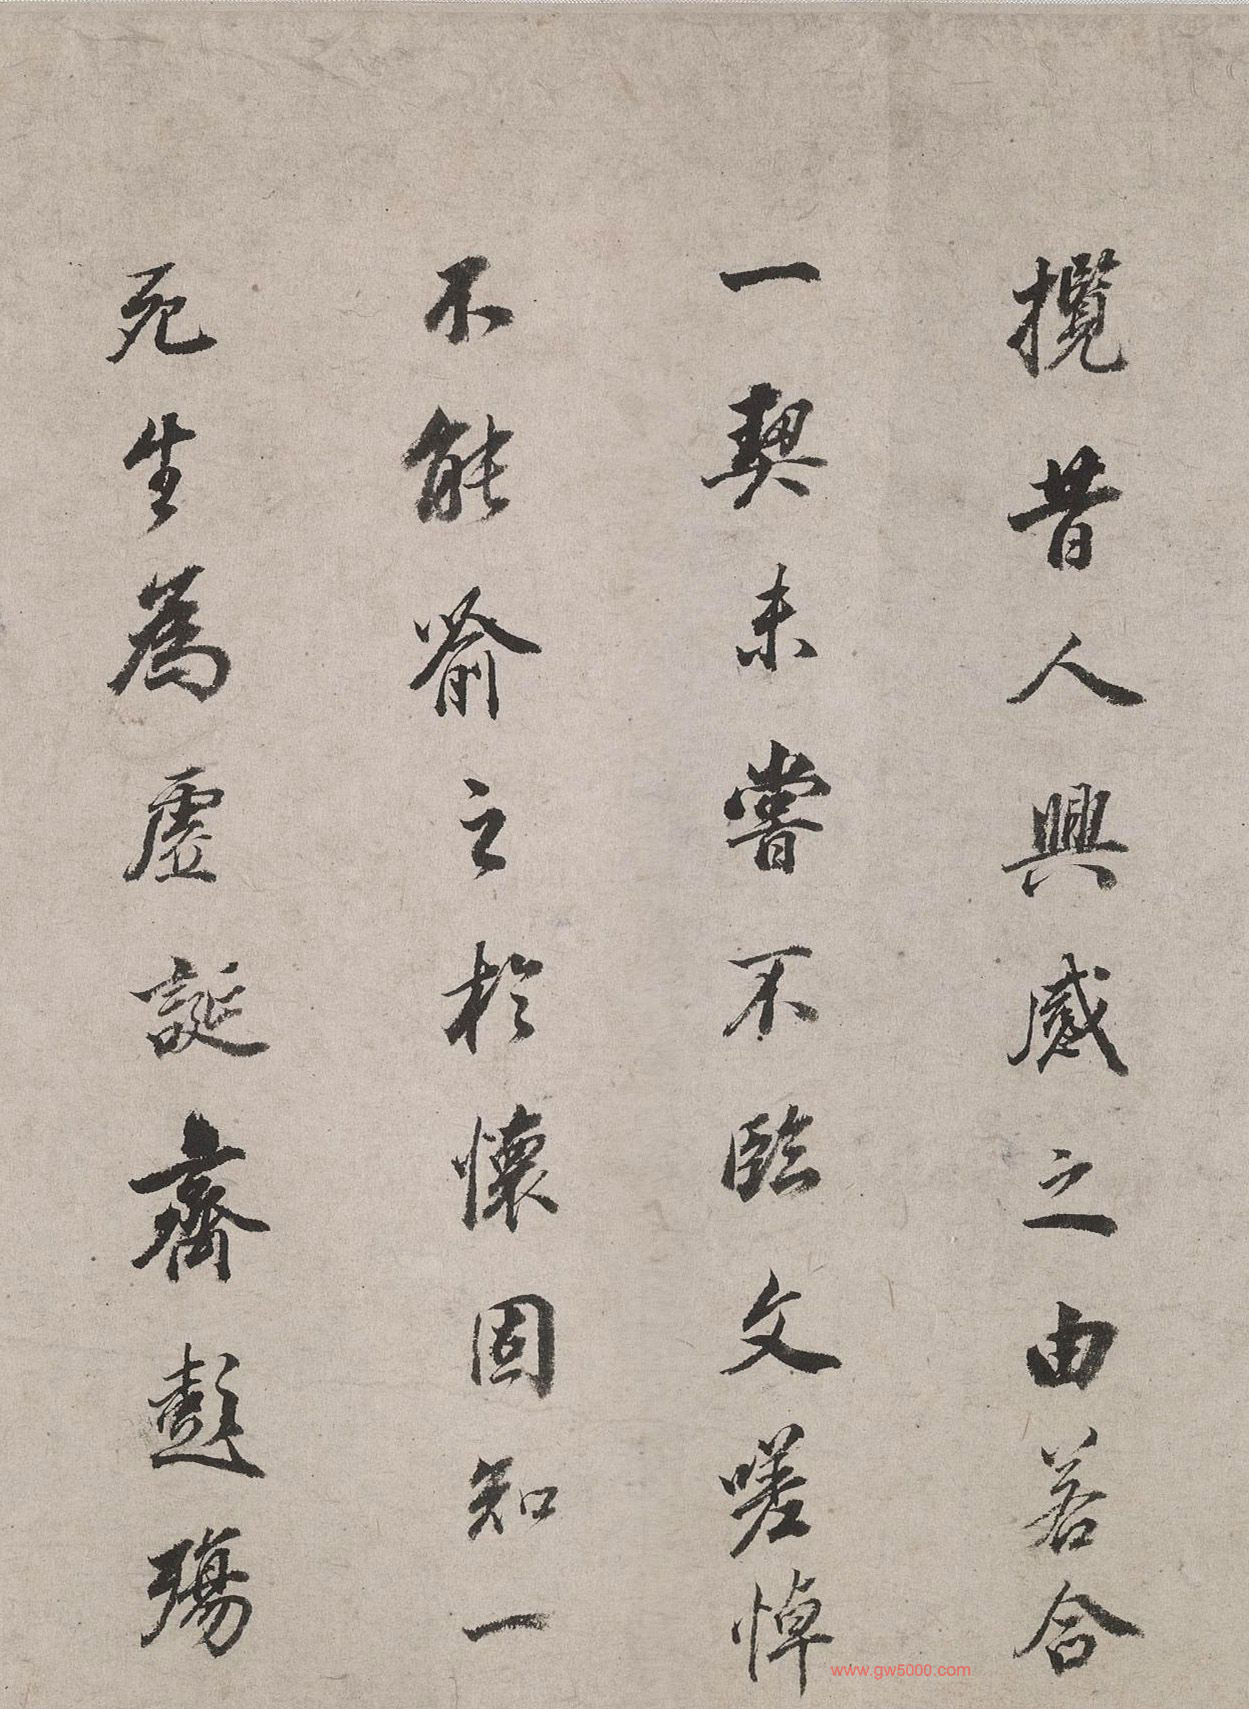 攬昔人興感之由若合
一契未嘗不臨文嗟悼
不能喻之於懷固知一
死生為虛誕齊彭殤
www.gw5000.com